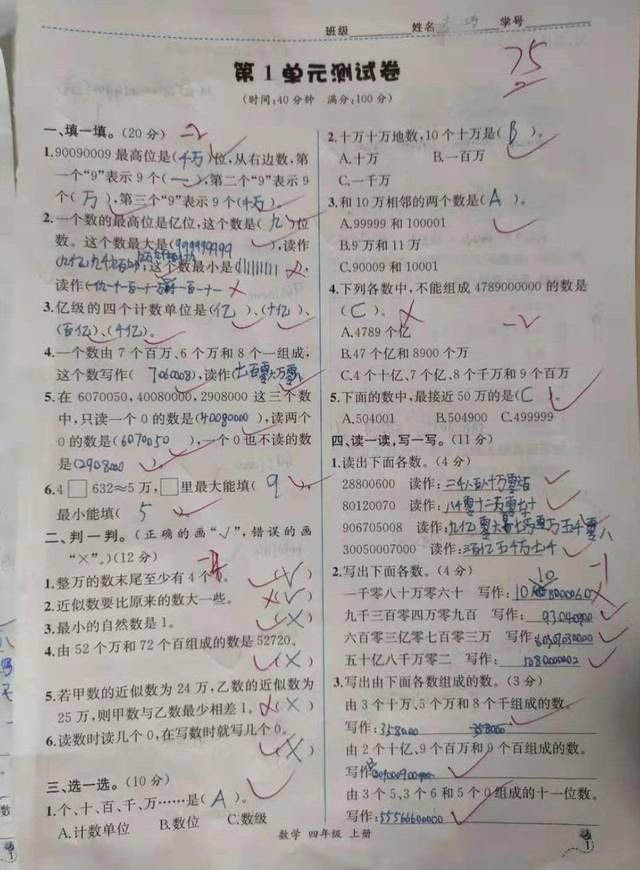 班级 姓名 学号
75
第1单元测试卷
(时间:40分钟 满分:100分)
一、填一填。(20分) -2
1.90090009最高位是(千万)位,从右边数,第
一个“9”表示9个(一),第二个“9”表示9
个(万),第三个“9”表示9个(千万)。
2.一个数的最高位是亿位,这个数是(九)位
数。这个数最大是(999999999),读作
,这个数最小是(111111111),
读作
3.亿级的四个计数单位是(亿)、(十亿)、
(百亿)、(千亿)。
4.一个数由7个百万、6个万和8个一组成,
这个数写作(7060008),读作(七百零六万零八
5.在6070050,40080000,2908000这三个数
中,只读一个0的数是(40080000),读两个
0的数是(6070050),一个0也不读的数
是(2908000)。
6.4□632≈5万,□里最大能填(9),
最小能填(5
二、判一判。(正确的画“√”,错误的画
“×”。)(12分)
1.整万的数末尾至少有4个0。(√)
2.近似数要比原来的数大一些。(√)
3.最小的自然数是1。(×)
4.由52个万和72个百组成的数是52720。
(×)
5.若甲数的近似数为24万,乙数的近似数为
25万,则甲数与乙数最少相差1。(×)
6.读数时读几个0,在写数时就写几个0。
(×)
三、选一选。(10分)
1.个、十、百、千、万……是(A)。
A.计数单位 B.数位 C.数级
2.十万十万地数,10个十万是(B)。
A.十万 B.一百万
C.一千万
3.和10万相邻的两个数是(A)。
A.99999和100001
B.9万和11万
C.90009和10001
4.下列各数中,不能组成4789000000的数是
(C)。 -2
A.4789个亿
B.47个亿和8900个万
C.4个十亿、7个亿、8个千万和9个百万
5.下面的数中,最接近50万的是(C)。
A.504001 B.504900 C.499999
四、读一读,写一写。(11分)
1.读出下面各数。(4分)
28800600 读作:
80120070 读作:八千零十二万零七十
906705008 读作:
30050007000 读作:
2.写出下面各数。(4分) -1
一千零八十万零六十 写作:
九千三百零四万零九百 写作:93040900
六百零三亿零七百零三万 写作:
五十亿八千万零二 写作:
3.写出由下面各数组成的数。(3分)
由3个十万、5个万和8个千组成的数。
写作:358000 358000
由2个十亿、9个百万和9个百组成的数。
写作
由3个5、3个6和5个0组成的十一位数。
写作:55566600000
数学 四年级 上册
1